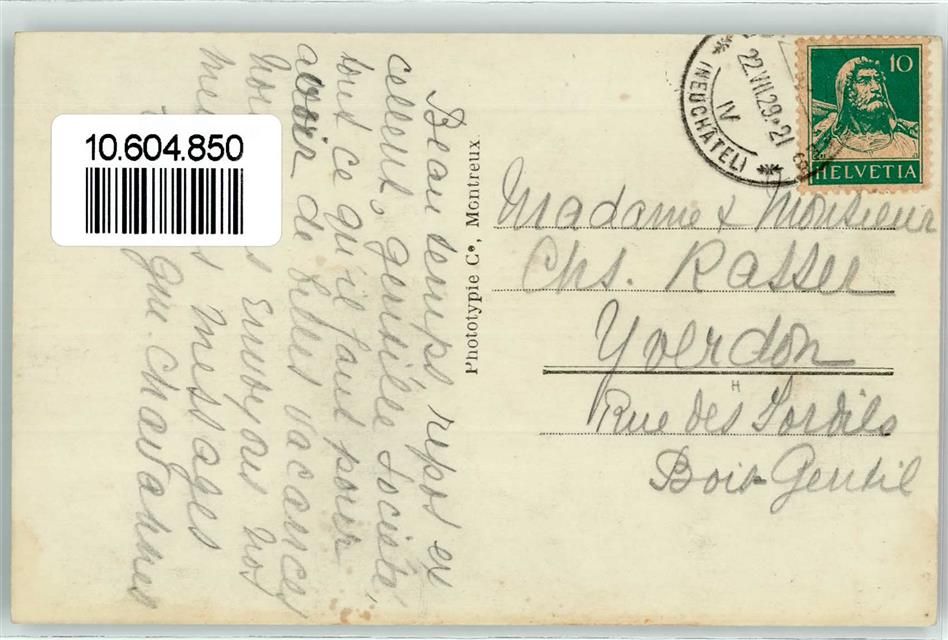 Beau temps repos ex
cellent, gentille Société,
tout ce qu'il faut pour
avoir de belles vacances
Nous Envoyons nos
messages
Chavannes
Phototypie Co, Montreux
10.604.850
22.VII.29-21
IV
(NEUCHATEL)
10
HELVETIA
Madame & Monsieur
Chs. Rasser
Yverdon
H
Rue des Jordils
Bois-Gentil